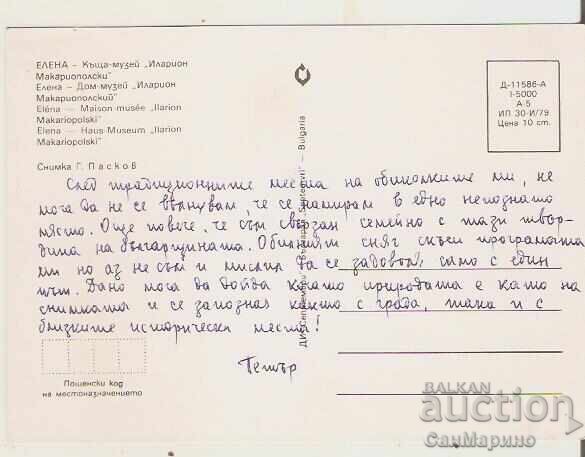 ЕЛЕНА – Къща-музей „Иларион
Макариополски"
Елена – Дом-музей „Иларион
Макариопольский"
Eléna — Maison-musée „Ilarion
Makariopolski"
Elena — Haus-Museum „Ilarion
Makariopolski"
Снимка Г. Пасков
Д-11586-А
I-5000
А 5
ИП 30-И/79
Цена 10 ст.
След традиционните места на обиколките ми, не
мога да не се вълнувам, че се намирам в едно непознато
място. Още повече, че съм свързан семейно с тази твър-
дина на българщината. Обилният сняг скъси програмата
ми но аз не съм и мислил да се задоволя само с един
път. Дано мога да дойда когато природата е като на
снимката и се запозная както с града, така и с
близките исторически места!
Петър
ДИ „Септември" – България „Septemvri" – Bulgaria
Пощенски код
на местоназначението
BALKAN
auction
СанМарино